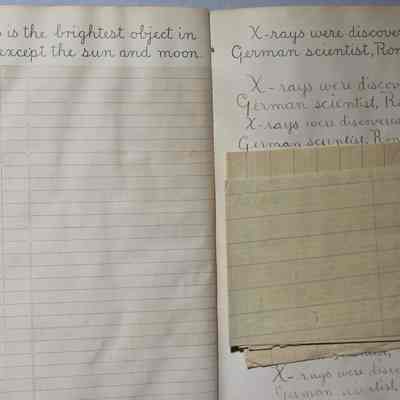 s is the brightest object in
except the sun and moon.
X-rays were discover
German scientist, Ron
X-rays were discov
German scientist, R
X-rays were discovered
German scientist, Ron
scientist,
X-rays were disco
German scientist,